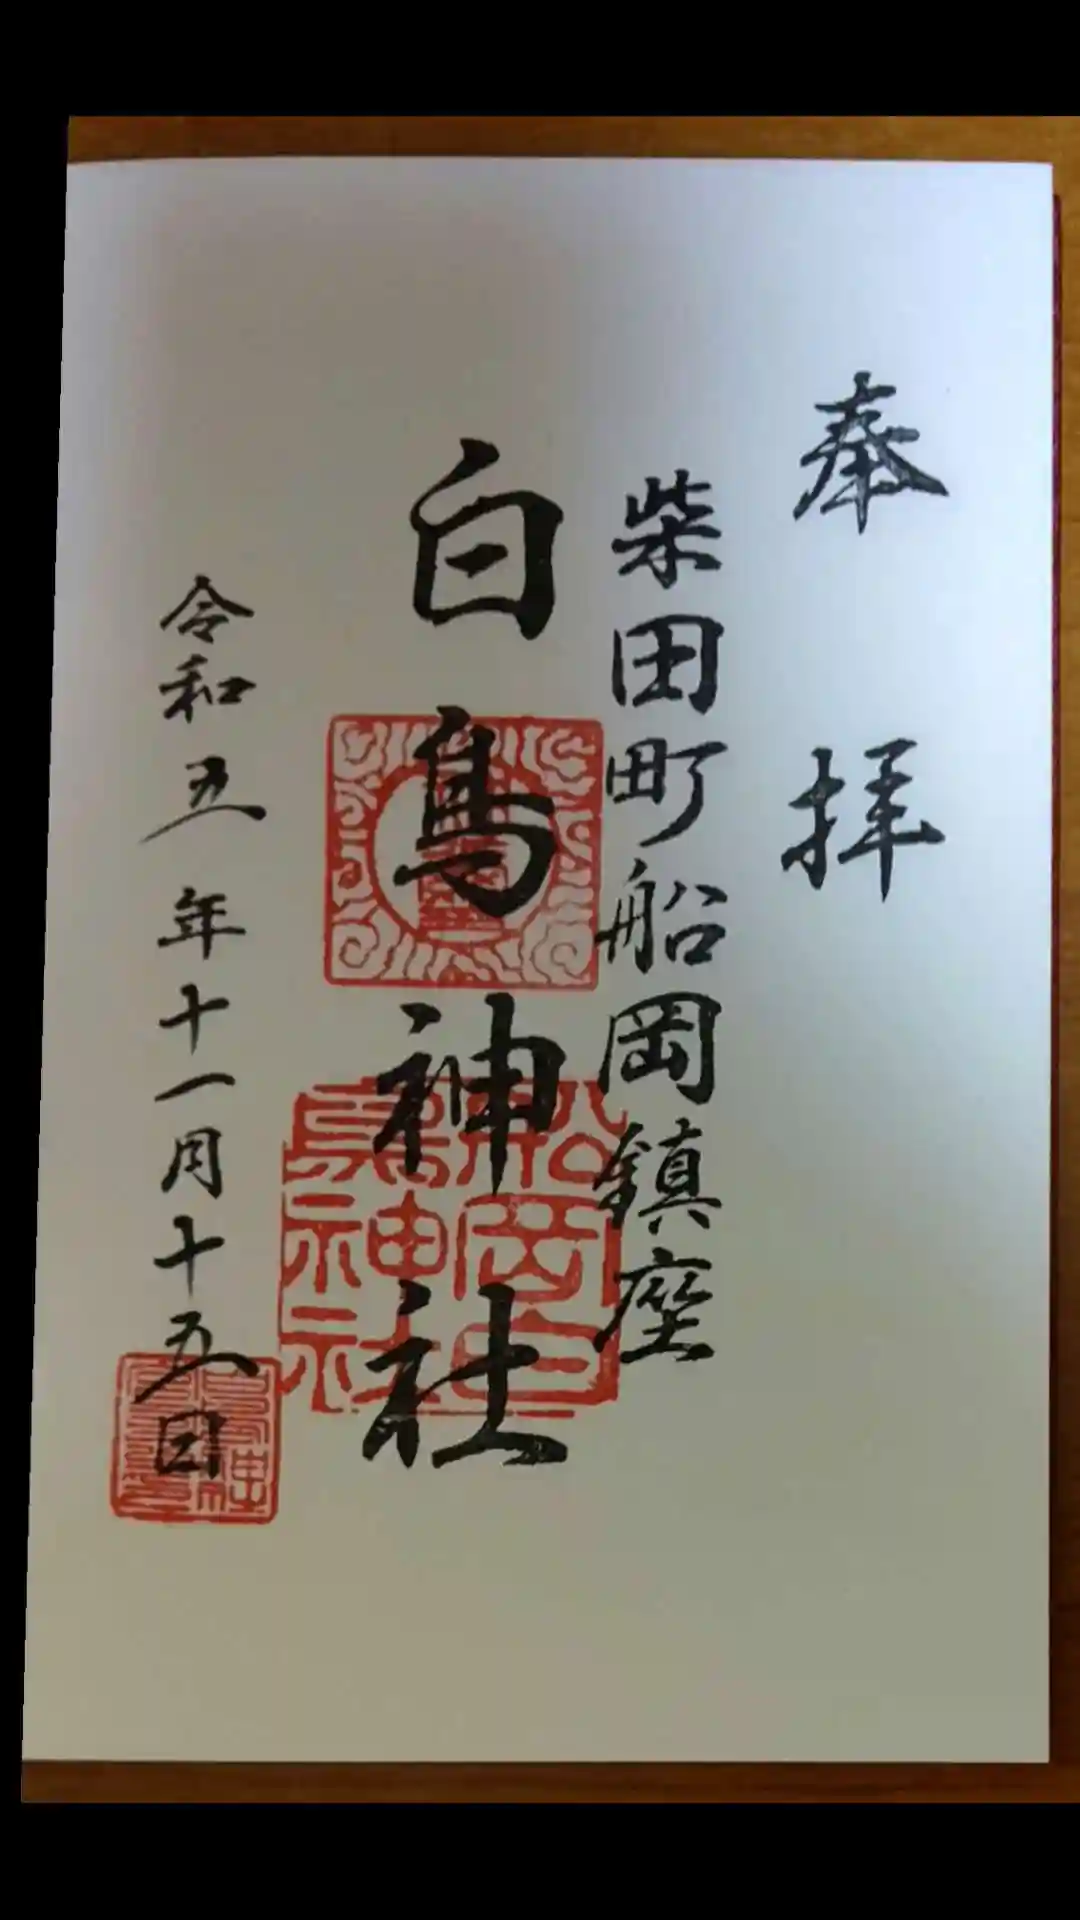 奉拝
柴田町船岡鎮座
白鳥神社
令和五年十一月十五日
船岡白鳥神社